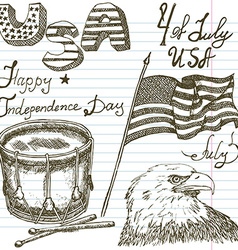 USA
4th of July
USA
Happy
Independence Day
July